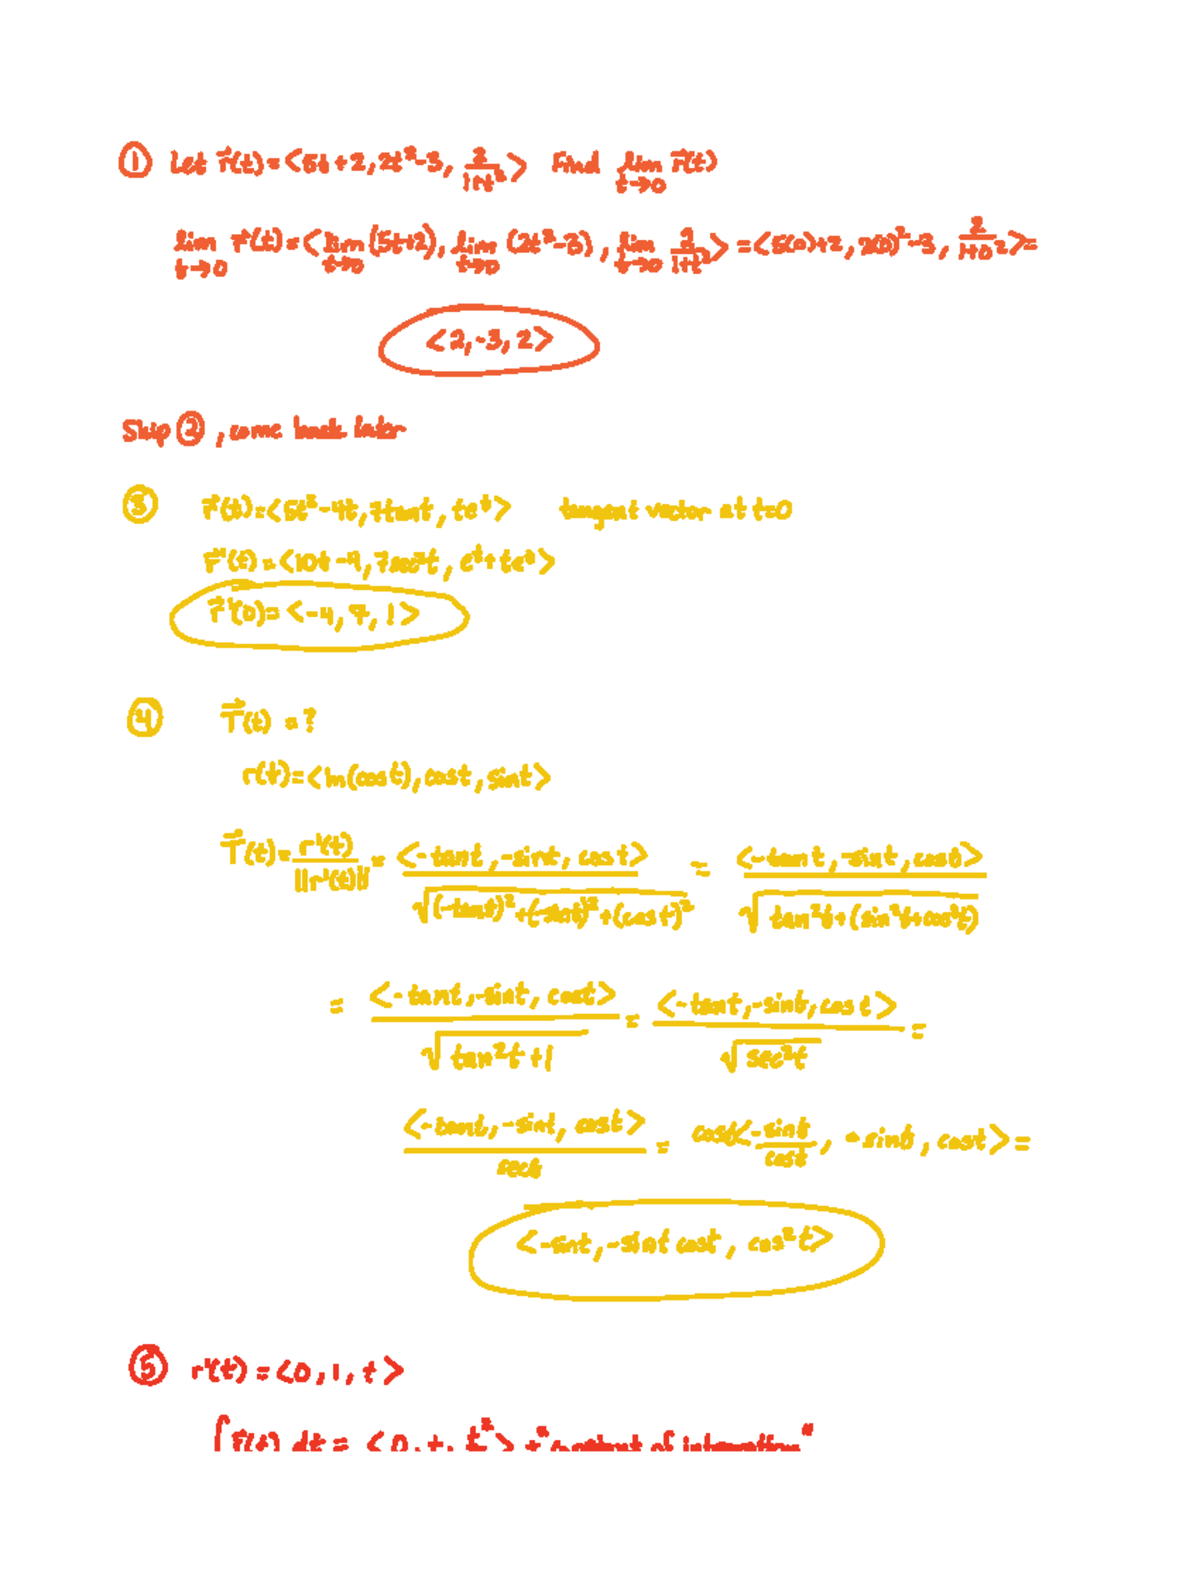 ① Let r⃗(t)=<5t+2,2t²-3, 2/(1+t²)> Find lim t→0 r⃗(t)
lim t→0 r⃗(t)=<lim t→0 (5t+2), lim t→0 (2t²-3), lim t→0 2/(1+t²)> =<5(0)+2, 2(0)²-3, 2/(1+0²)>=
<2,-3,2>
Skip ②, come back later
③ r⃗(t)=<5t²-4t,7tant,te^t> tangent vector at t=0
r⃗'(t)=<10t-4,7sec²t, e^t+te^t>
r⃗'(0)=<-4,7,1>
④ T⃗(t) =?
r(t)=<ln(cost),cost,sint>
T⃗(t)= r'(t)/||r'(t)|| = <-tant,-sint,cost>/√((-tant)²+(-sint)²+(cost)²) = <-tant,-sint,cost>/√(tan²t+(sin²t+cos²t))
= <-tant,-sint,cost>/√(tan²t+1) = <-tant,-sint,cost>/√(sec²t) =
<-tant,-sint,cost>/sect = cost<-sint/cost, -sint, cost>=
<-sint,-sint cost, cos²t>
⑤ r'(t) =<0,1,t>
dt = <0,t, t²